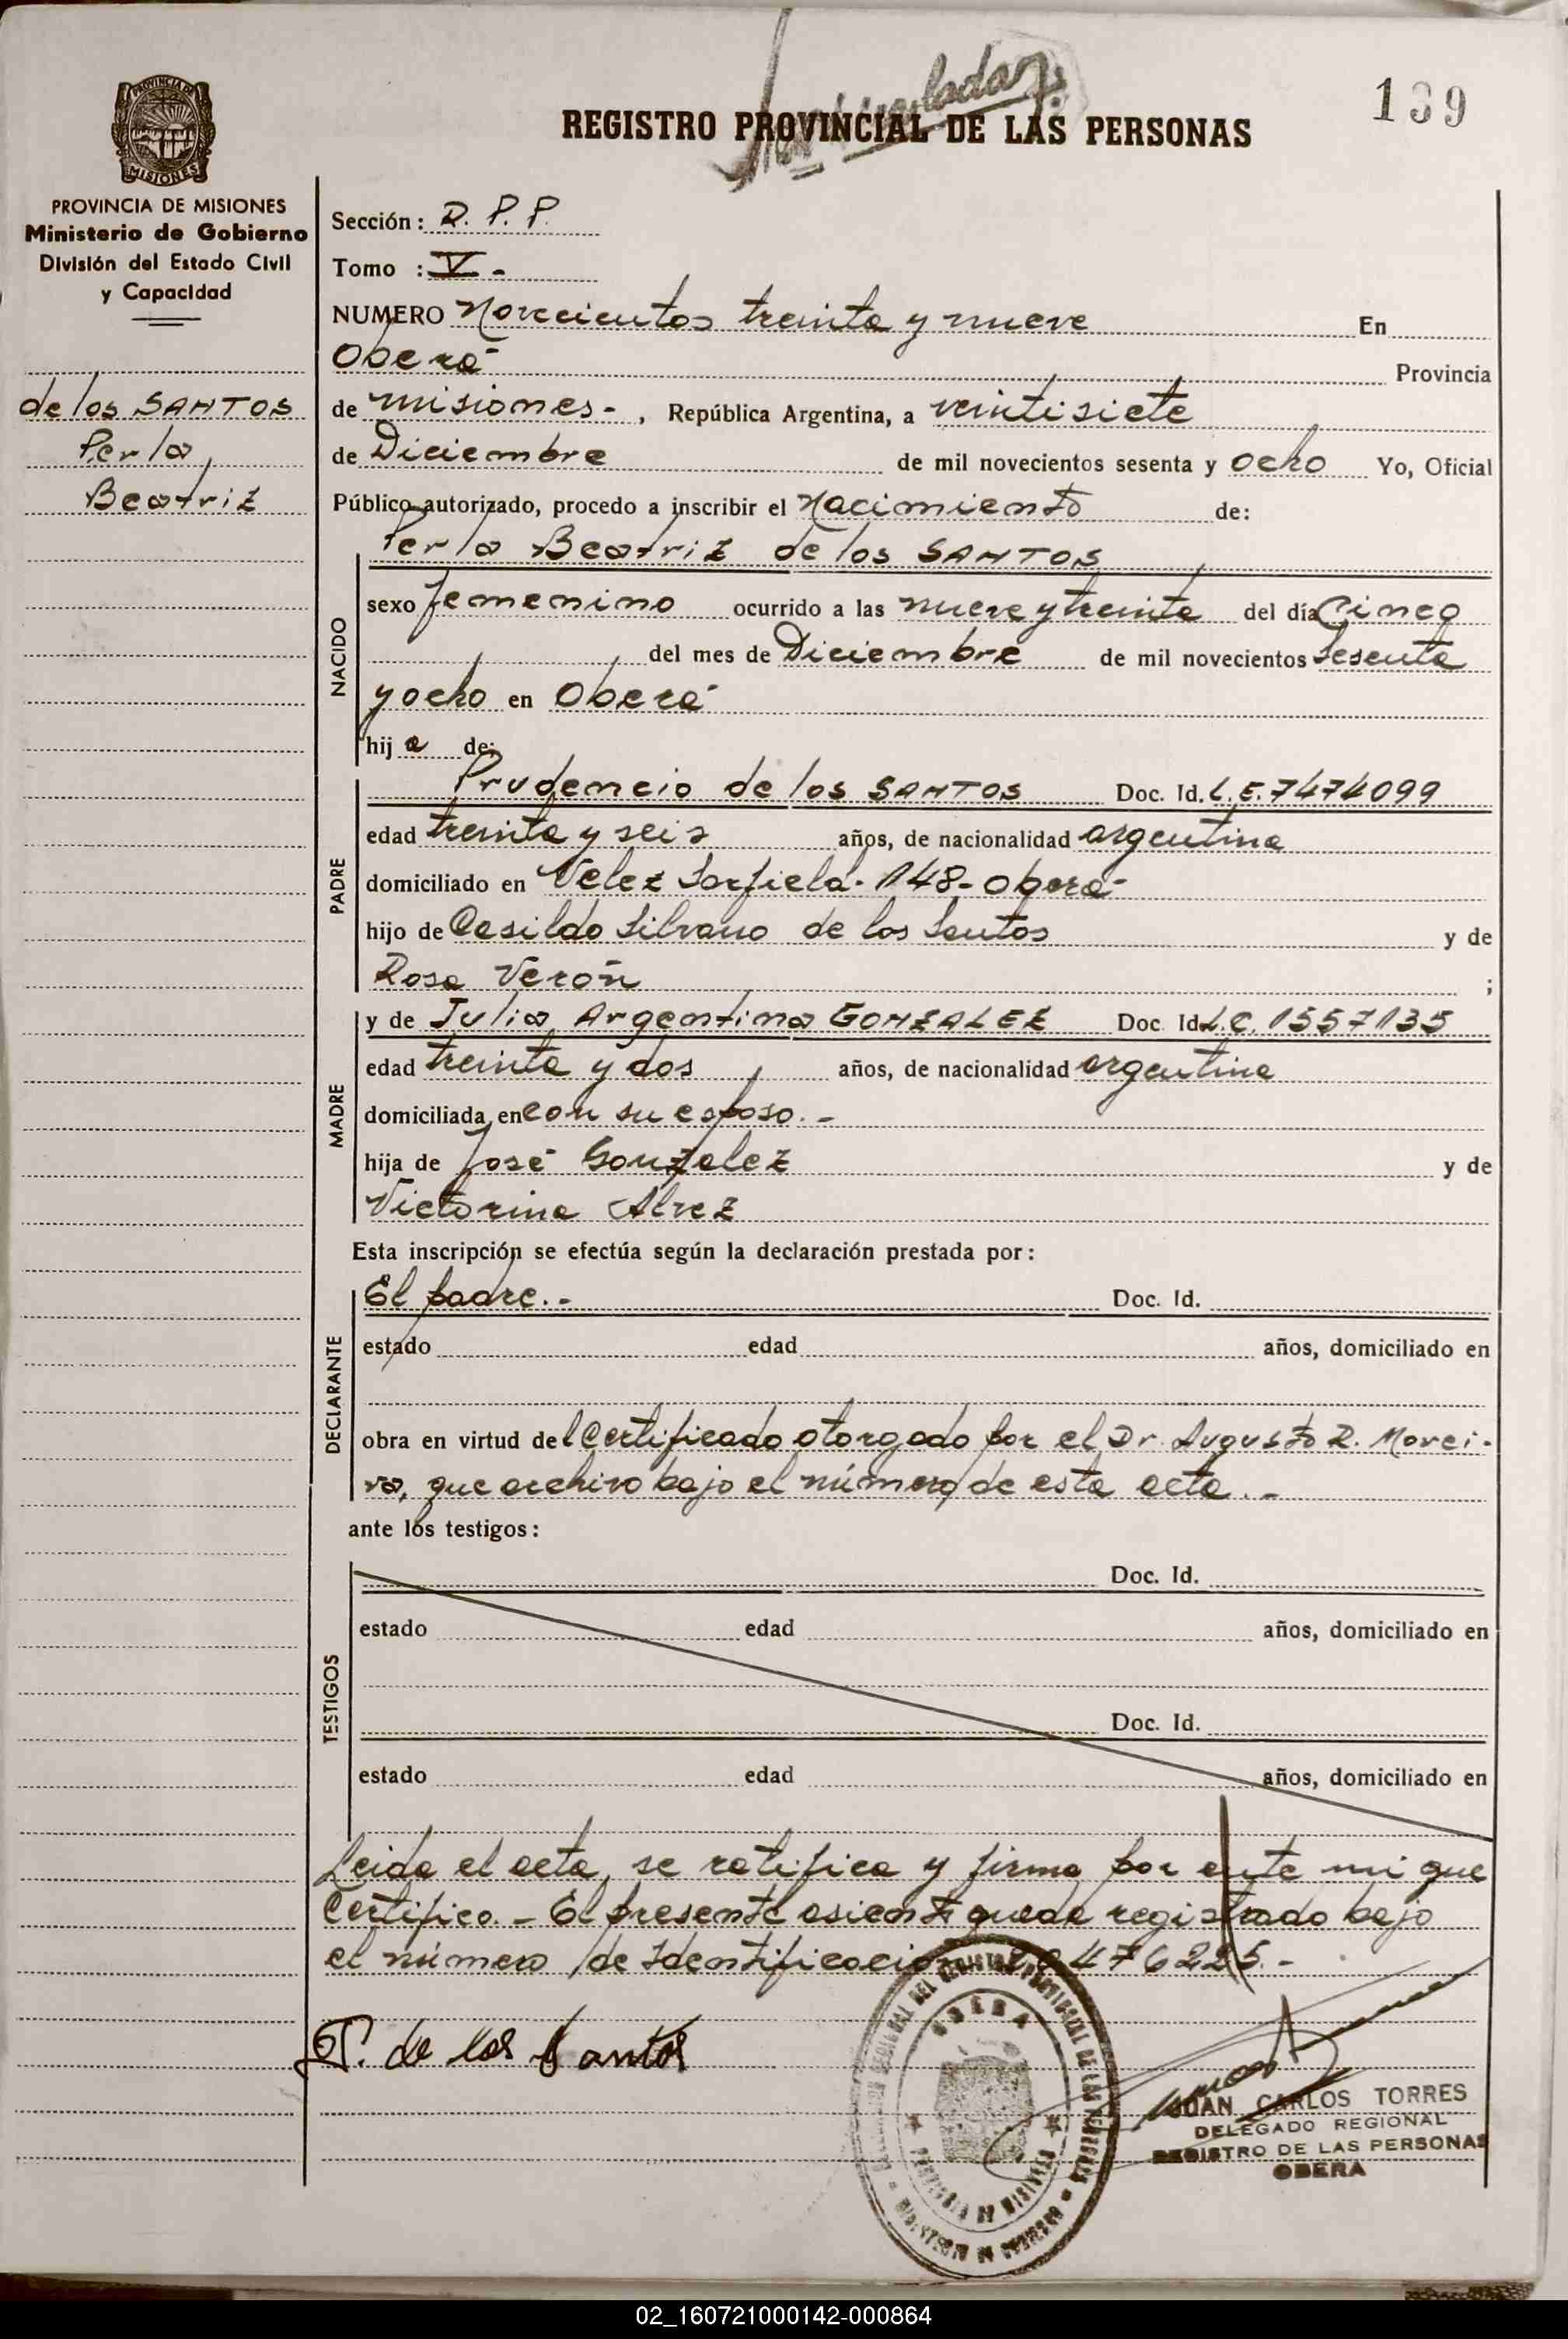 REGISTRO PROVINCIAL DE LAS PERSONAS
139
PROVINCIA DE MISIONES
Ministerio de Gobierno
División del Estado Civil
y Capacidad
de los SANTOS
Perla
Beatriz
Sección: R. P. P.
Tomo : V -
NUMERO Novecientos treinta y nueve En
Oberá Provincia
de misiones-, República Argentina, a veintisiete
de Diciembre de mil novecientos sesenta y ocho Yo, Oficial
Público autorizado, procedo a inscribir el Nacimiento de:
Perla Beatriz de los SANTOS
NACIDO
sexo femenino ocurrido a las nueve y treinta del día Cinco
del mes de Diciembre de mil novecientos Sesenta
y ocho en Oberá
hij a de:
PADRE
Prudencio de los SANTOS Doc. Id. L.E. 7474099
edad treinta y seis años, de nacionalidad argentina
domiciliado en Velez Sarfield- 148- Oberá-
hijo de Casildo Silvano de los Santos y de
Rosa Verón ;
MADRE
y de Julia Argentina GONZALEZ Doc. Id. L.C. 1557135
edad treinta y dos años, de nacionalidad argentina
domiciliada en con su esposo.-
hija de José Gonzalez y de
Victorina Alvez
Esta inscripción se efectúa según la declaración prestada por:
DECLARANTE
El padre.- Doc. Id.
estado edad años, domiciliado en
obra en virtud del Certificado otorgado por el Dr. Augusto R. Morei-
ra, que archivo bajo el número de esta acta.-
ante los testigos:
TESTIGOS
Doc. Id.
estado edad años, domiciliado en
Doc. Id.
estado edad años, domiciliado en
Leida el acta, se ratifica y firma por ante mi que
Certifico.- El presente asiento queda registrado bajo
el número de Identificación 476225.-
P. de los Santos
OBERA
PROVINCIA DE MISIONES
MINISTERIO DE GOBIERNO
JUAN CARLOS TORRES
DELEGADO REGIONAL
REGISTRO DE LAS PERSONAS
OBERA
02_160721000142-000864